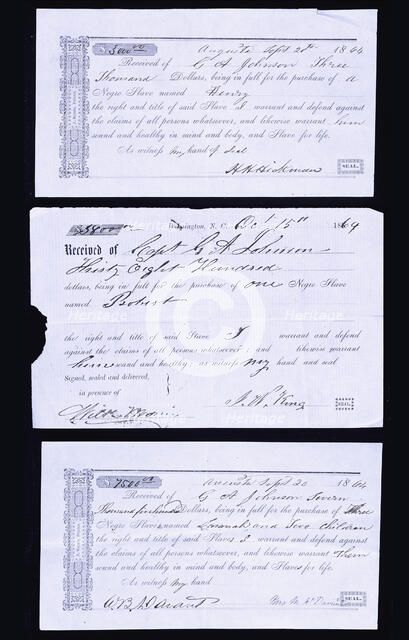 $ 3000.00
Augusta Sept 20th 1864
Received of G A Johnson Three
Thousand Dollars, being in full for the purchase of a
Negro Slave named Henry
the right and title of said Slave I warrant and defend against
the claims of all persons whatsoever, and likewise warrant him
sound and healthy in mind and body, and Slave for life.
As witness my hand & Seal
H H Hickman SEAL.
$ 3800.00
Wilmington, N. C. Oct 15th 1864
Received of Capt G A Johnson
Thirty Eight Hundred
dollars, being in full for the purchase of one Negro Slave
named Robert
the right and title of said Slave I warrant and defend
against the claims of all persons whatsoever and likewise warrant
him sound and healthy as witness my hand and seal
Signed, sealed and delivered,
in presence of
J. W. King SEAL
$ 7500.00
Augusta Sept 20 1864
Received of G A Johnson Seven
Thousand five hundred Dollars, being in full for the purchase of Three
Negro Slaves named and Two Children
the right and title of said Slaves I warrant and defend against
the claims of all persons whatsoever, and likewise warrant them
sound and healthy in mind and body, and Slaves for life.
As witness my hand
Mrs M
Heritage